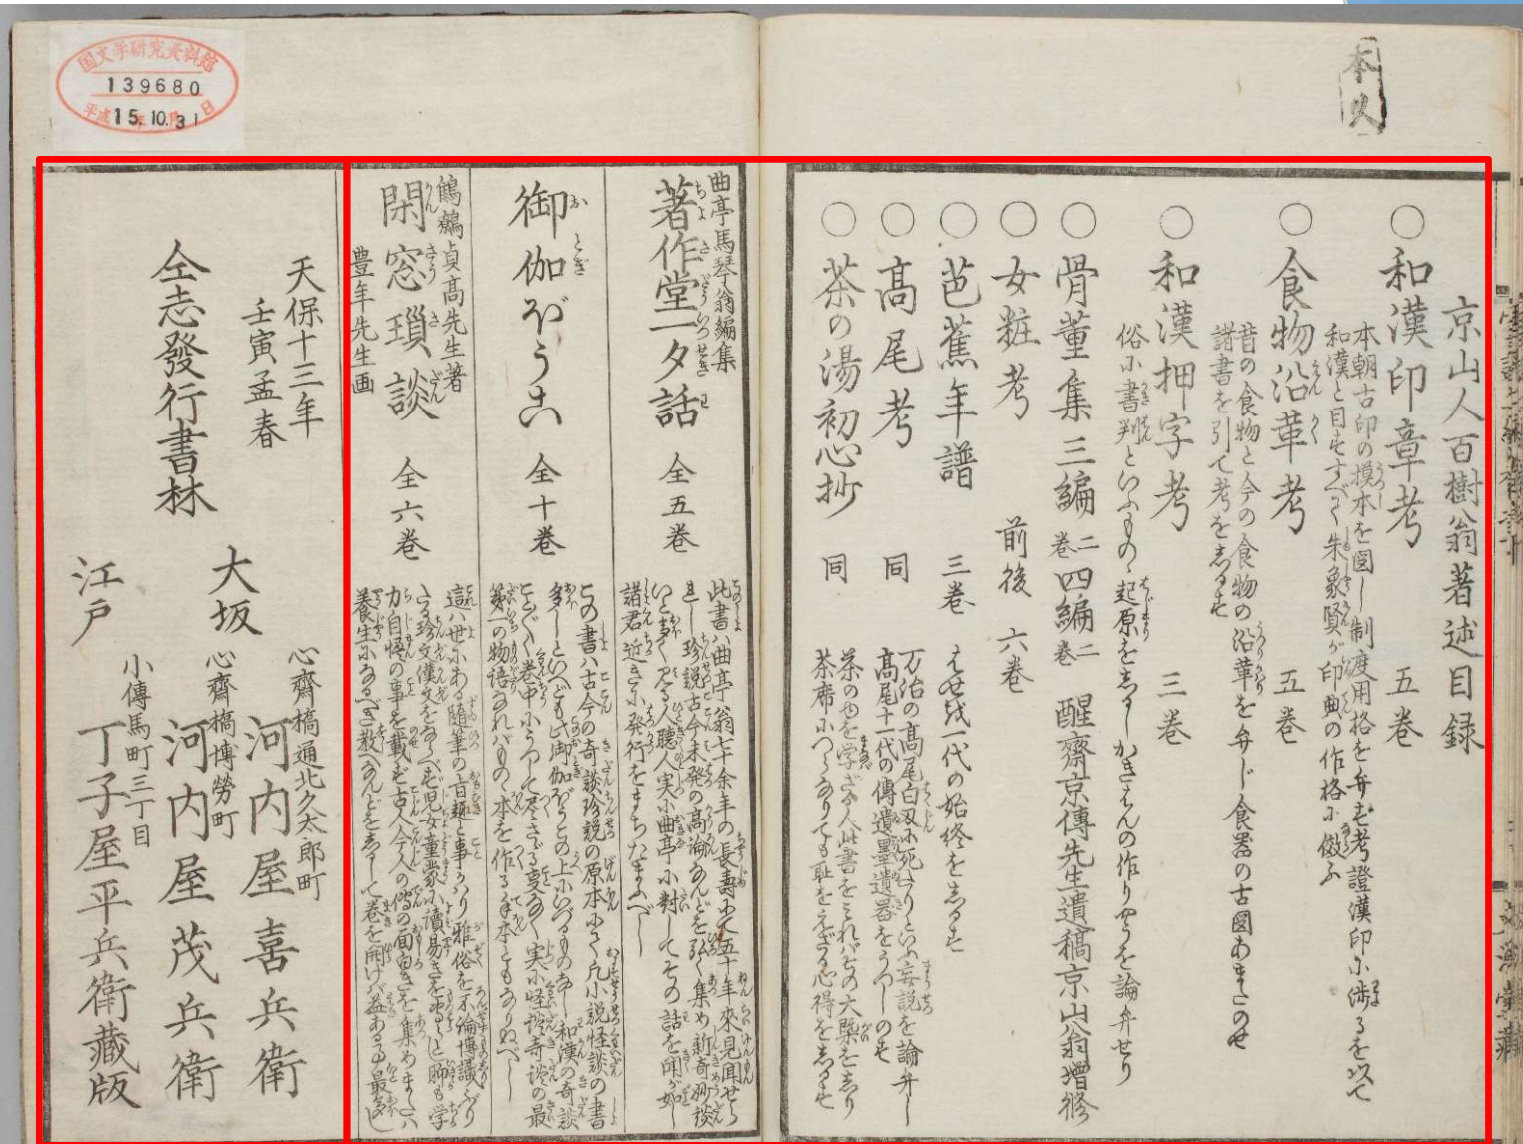 本以
京山人百樹翁著述目録
○和漢印章考 五巻
本朝古印の摸本を図し制度用格を弁ず考證漢印に渉るを以て
和漢と目すすべて朱象賢が印典の作格に倣ふ
○食物沿革考 五巻
昔の食物と今の食物の沿革を弁じ食器の古図あまたのせ
諸書を引て考をしるす
○和漢押字考 三巻
俗に書判といふもの起原をしるしかきはんの作りやうを論弁せり
○骨董集三編 二巻 四編 二巻 醒齋京傳先生遺稿京山翁増修
○女粧考 前後 六巻
○芭蕉年譜 三巻 はせを一代の始終をしるす
○髙尾考 同 万治の髙尾白刃に死せりといふ妄説を論弁し
髙尾十一代の傳遺墨遺器をうつしのす
○茶の湯初心抄 同 茶のゆを学ざる人此書をみればその大槩をしり
茶席につらなりても耻をえざる心得をしるせり
曲亭馬琴翁編集
著作堂一夕話 全五巻
此書ハ曲亭翁七十余年の長壽にて五十年來見聞せられし珍説古今未発の髙論なんどを弘く集め新奇妙談
いと多く見る人聴人実に曲亭に對してその話を聞が如し
諸君近きに発行をまちたまへし
御伽ばうこ 全十巻
この書ハ古今の奇談珍説の原本にて凡小説怪談の書
多しといへども此御伽ばうこの上にいづるものなし和漢の奇談
ことごとく巻中にうつして尽さざる事なく実に怪談奇談の最
第一の物語なれバもの本を作る手本ともなりぬべし
鷦鷯貞髙先生著
閑窓瑣談 全六巻
豊年先生画
這ハ世にある随筆の旨趣と事かハり雅俗を不論博識ぶり
たる珍文僕文をならべず児女童蒙に讀易きを専らとし聊も学
力自慢の事を載ず古人今人の傳の面白きを集めまた
養生になるべき教へなんどをしるして巻を開けバ益ある事最多し
天保十三年
壬寅孟春
仝志發行書林
大坂
心齋橋通北久太郎町
河内屋喜兵衛
心齋橋博労町
河内屋茂兵衛
江戸
小傳馬町三丁目
丁子屋平兵衛藏版
国文学研究資料館
139680
平成15.10.31日